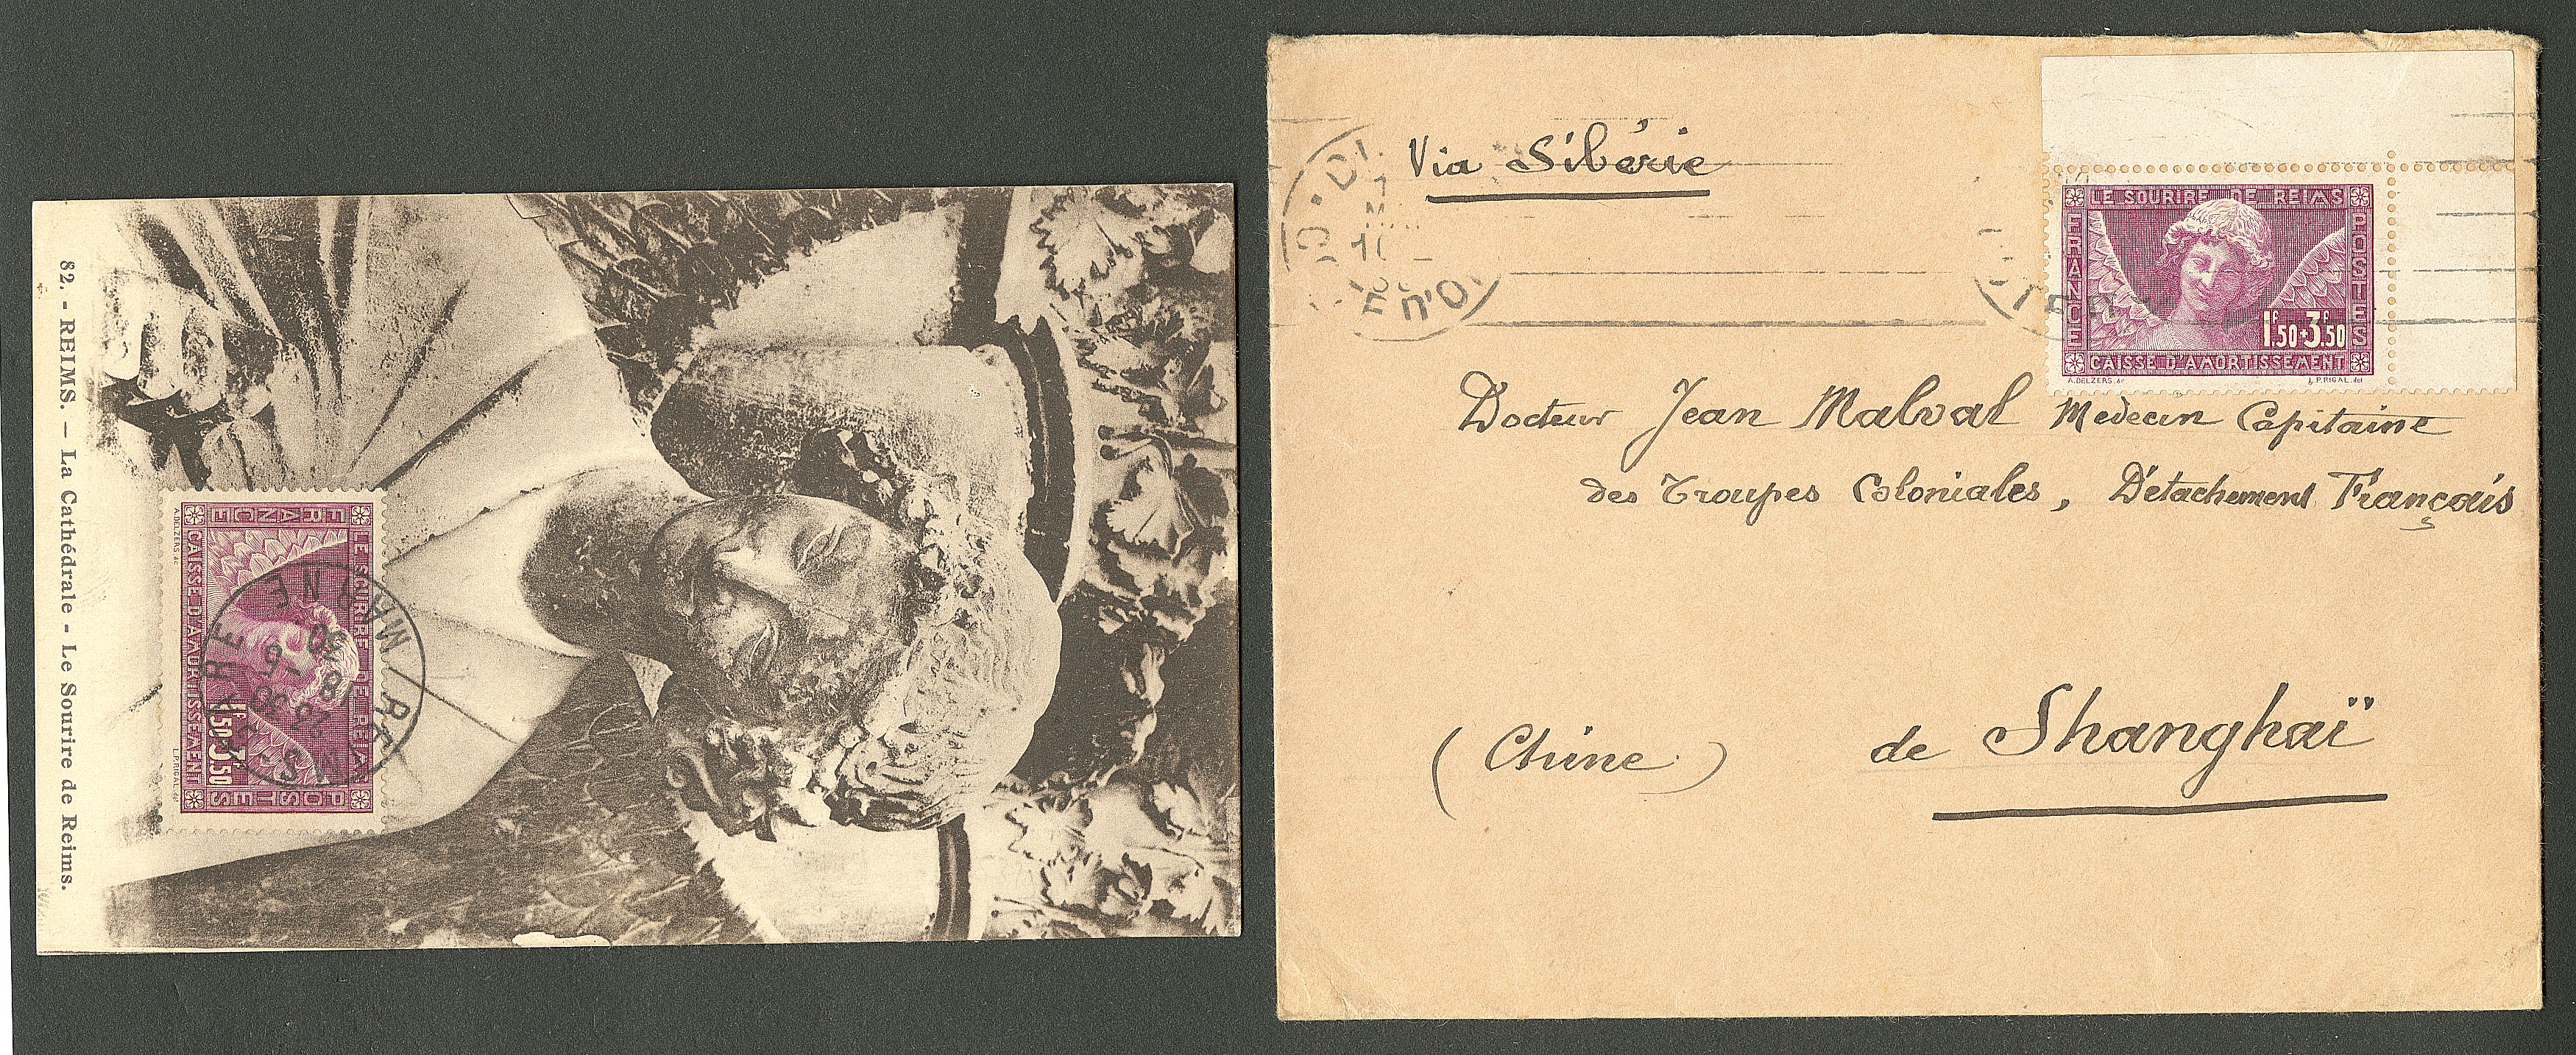 82. - REIMS. — La Cathédrale - Le Sourire de Reims.
LE SOURIRE DE REIMS
FRANCE
POSTES
1F.50+3F.50
CAISSE D'AMORTISSEMENT
A.DELZERS.sc
L.P.RIGAL.del
REIMS-GARE
MARNE
18 30
23 -6
30
Via Sibérie
LE SOURIRE DE REIMS
FRANCE
POSTES
1F.50+3F.50
CAISSE D'AMORTISSEMENT
A.DELZERS.sc
L.P.RIGAL.del
Docteur Jean Malval Médecin Capitaine
des Troupes Coloniales, Détachement Français
de Shanghaï
(Chine)